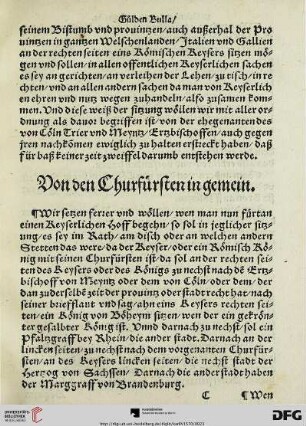 Gülden Bulla/
seinem Bistumb vnd prouintz/ auch außerhal der Pro
uintzen in gantzen Welschenlanden/ Italien vnd Gallien
an der rechten seiten eins Römischen Keysers sitzen mö-
gen vnd sollen/ in allen offentlichen Keyserlichen sachen
es sey an gerichten/ an verleihen der Lehen/ zu tisch/ in re
rechten/ vnd an allen andern sachen da man von Keyserlich
en ehren vnd nutz wegen zuhandeln/ also zusamen kom-
men. Vnd diese weiß der sitzung wöllen wir mit aller ord
dnung als dauor begriffen ist/ von der ehegenanten des
von Cöln Trier vnd Meyntz/ Ertzbischoffen/ auch gegen
jren nachkömen ewiglich zu halten erstreckt haben/ daß
für baß keiner zeit zweiffel darumb entstehen werde.
Von den Churfürsten in gemein.
¶Wir setzen ferrer vnd wöllen/ wen man nun fürtan
einen Keyserlichen Hoff begehn/ so sol in jeglicher sitz-
ung/ es sey im Rath/ am disch oder an welchen andern
Stetten das were/ da der Keyser/ oder ein Römisch Kö-
nig mit seinen Churfürsten ist/ da sol an der rechten sei-
ten des Keysers oder des Königs zu nechst nach dē Ertz-
bischoff von Meyntz oder dem von Cöln/ oder dem/ der
dan zuderselbē zeit der prouintz oder stadt recht hat/ nach
seiner brieff laut vnd sag/ ahn eins Keysers rechten sei-
ten/ ein König von Böheym sitzen/ wen der ein gekrön-
ter gesalbter König ist. Vnnd darnach zu nechst/ sol ein
Pfaltzgraff bey Rhein/ die ander stadt. Darnach an der
lincken seiten/ zu nechst nach dem vorgenanten Churfür-
sten/ an des Keysers lincken seiten/ die nechst stadt der
Hertzog von Sachssen/ Darnach die ander stadt haben
der Marggraff von Brandenburg.
C ¶Wen
UNIVERSITÄTS-
BIBLIOTHEK
HEIDELBERG
DFG